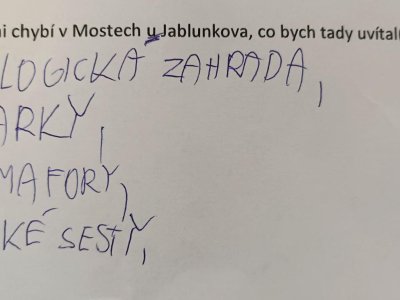 ni chybí v Mostech u Jablunkova, co bych tady uvítal
LOGICKA ZAHRADA,
ARKY,
MAFORY,
KÉ SESTY,